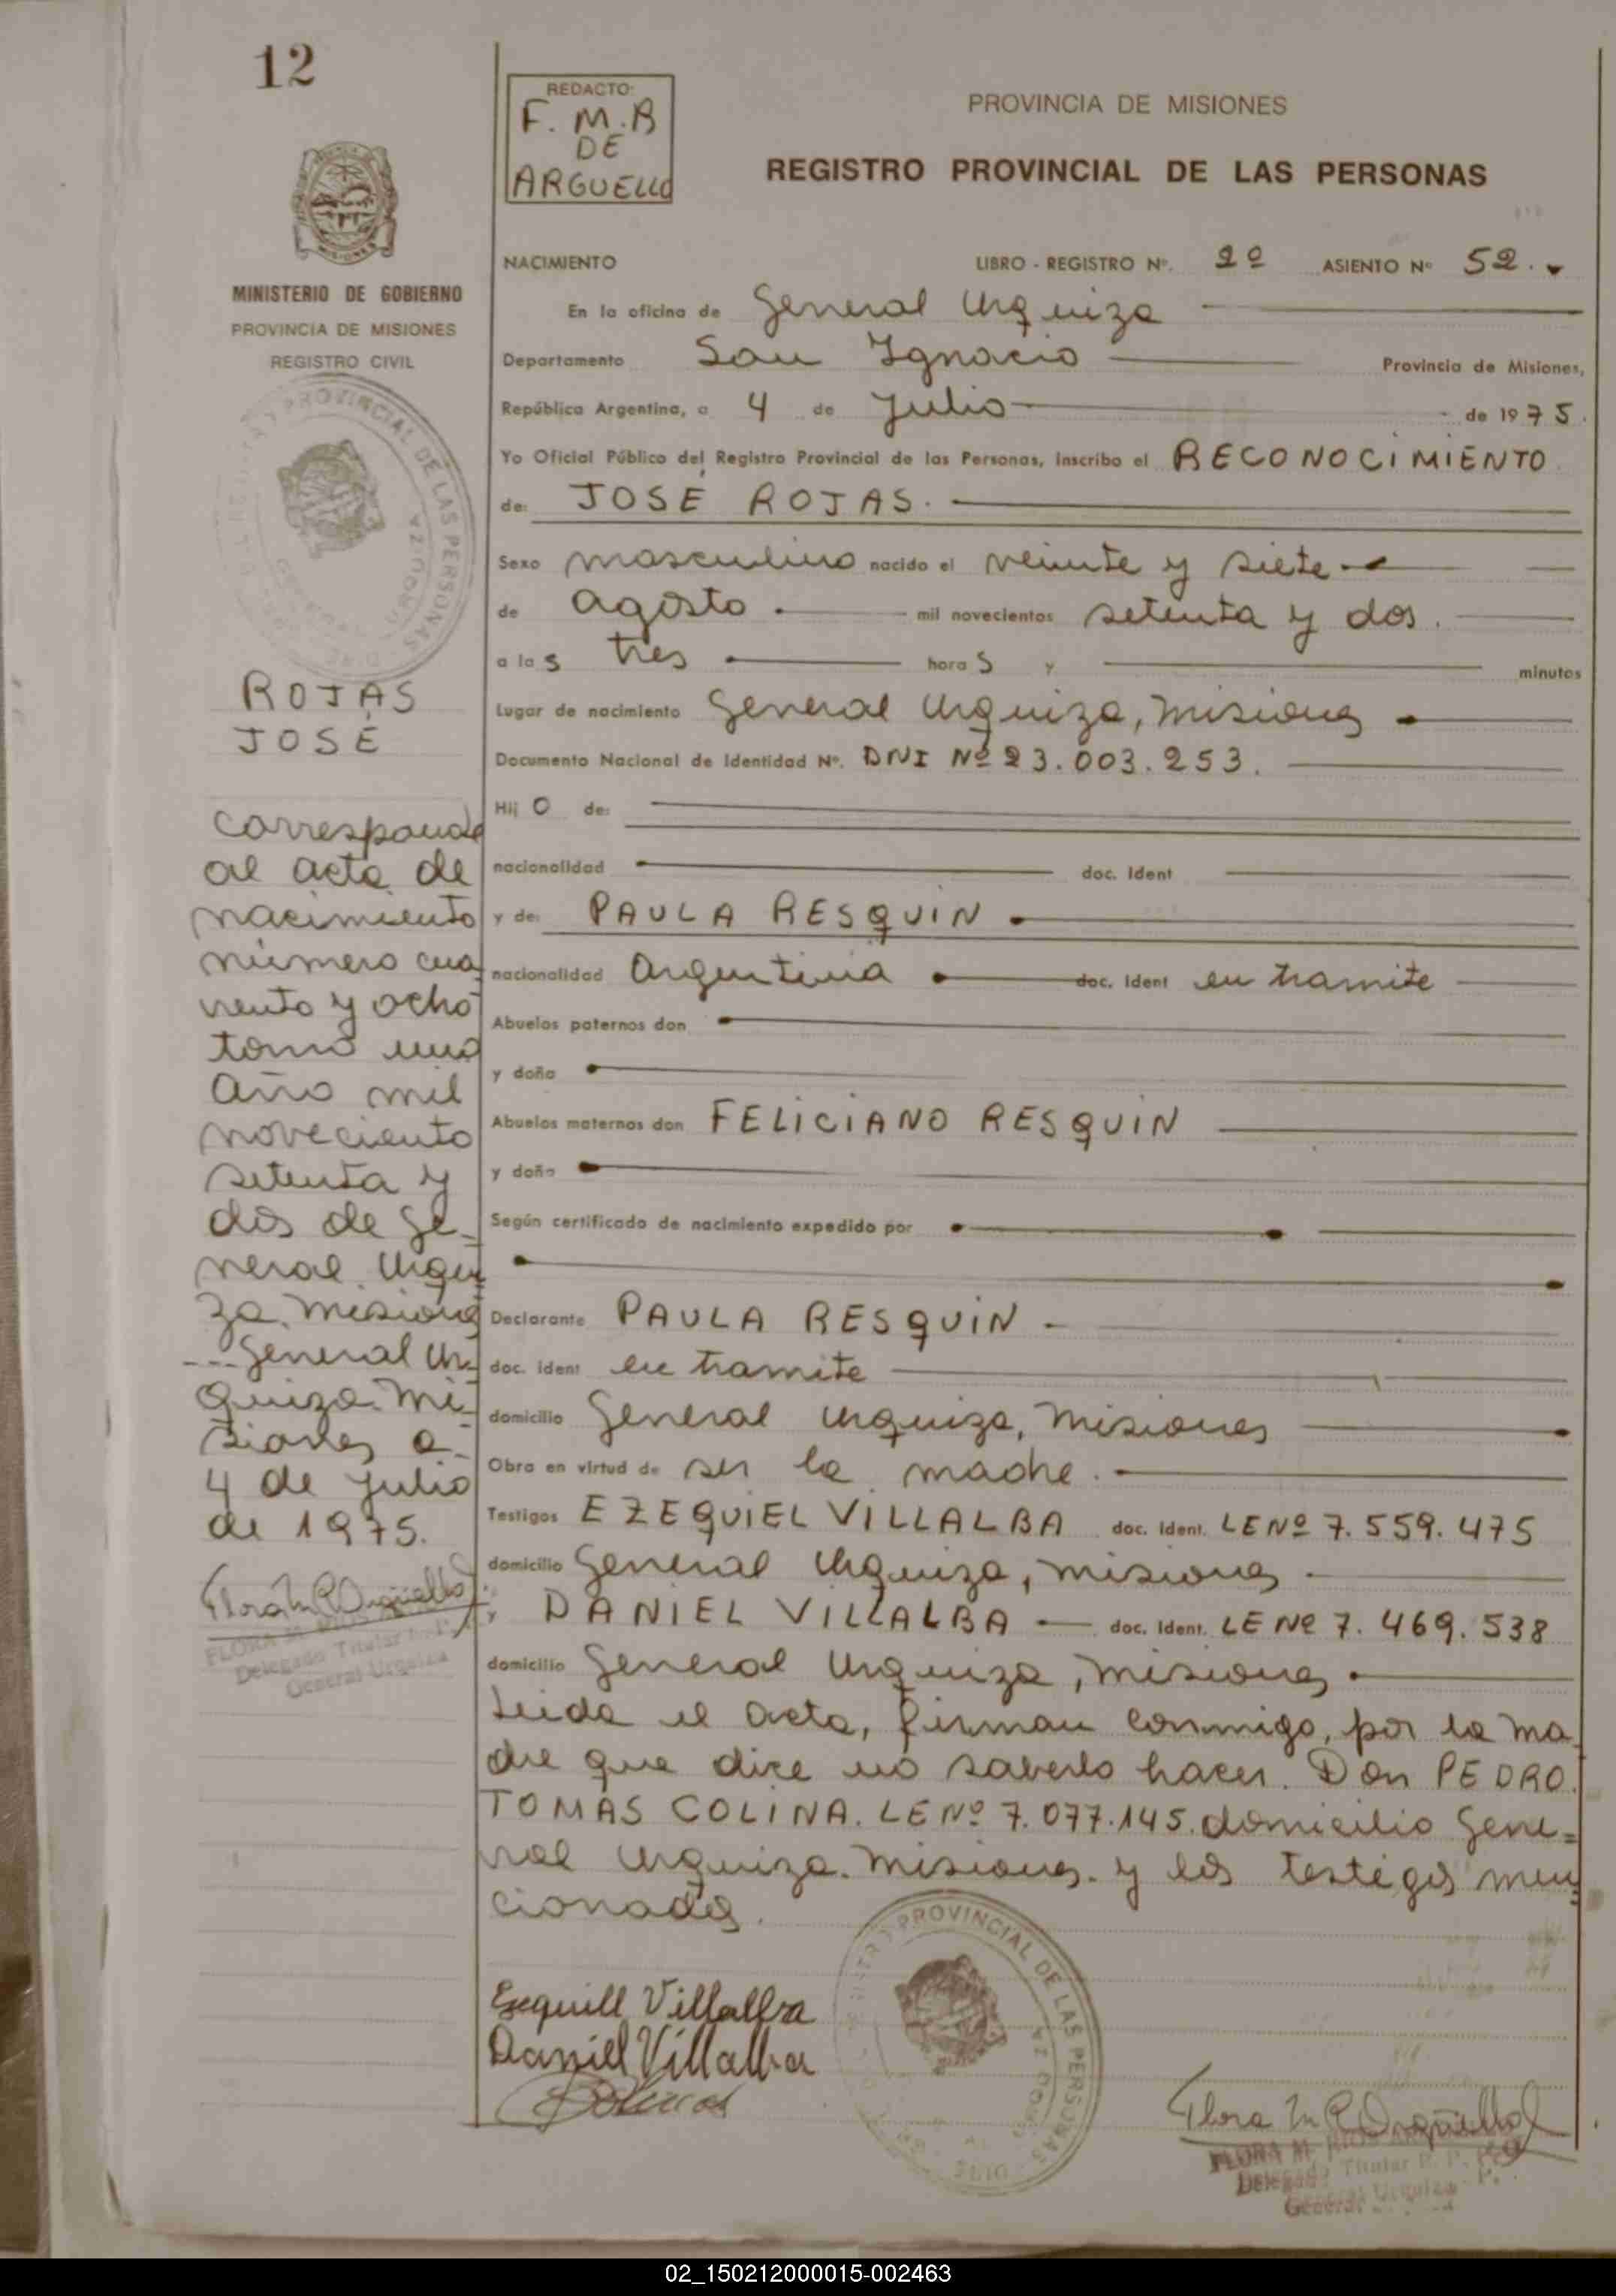 12
REDACTO:
F. M. R
DE
ARGUELLO
PROVINCIA DE MISIONES
REGISTRO PROVINCIAL DE LAS PERSONAS
MINISTERIO DE GOBIERNO
PROVINCIA DE MISIONES
REGISTRO CIVIL
ROJAS
JOSÉ
corresponde
al acta de
nacimiento
número cua
renta y ocho
tomo uno
año mil
noveciento
setenta y
dos de Ge-
neral Urqui
za. Misiones
---General Ur-
quiza. Mi-
siones a
4 de Julio
de 1975.
FLORA M. RIOS
Delegado Titular
General Urquiza
NACIMIENTO LIBRO - REGISTRO Nº. 2º ASIENTO Nº 52.
En la oficina de General Urquiza
Departamento San Ignacio Provincia de Misiones,
República Argentina, a 4 de Julio de 1975.
Yo Oficial Público del Registro Provincial de las Personas, inscribo el RECONOCIMIENTO
de: JOSÉ ROJAS.
Sexo masculino nacido el veinte y siete
de agosto mil novecientos setenta y dos.
a las tres horas y minutos
Lugar de nacimiento General Urquiza, Misiones
Documento Nacional de Identidad Nº. DNI Nº 23.003.253.
Hijo de:
nacionalidad doc. ident
y de: PAULA RESQUIN
nacionalidad Argentina doc. ident en tramite
Abuelos paternos don
y doña
Abuelos maternos don FELICIANO RESQUIN
y doña
Según certificado de nacimiento expedido por
Declarante PAULA RESQUIN
doc. ident en tramite
domicilio General Urquiza, Misiones
Obra en virtud de ser la madre.
Testigos EZEQUIEL VILLALBA doc. ident. LE Nº 7.559.475
domicilio General Urquiza, Misiones
y DANIEL VILLALBA doc. ident. LE Nº 7.469.538
domicilio General Urquiza, Misiones
Leida el acta, firman conmigo, por la ma
dre que dice no saberlo hacer. Don PEDRO
TOMAS COLINA. LE Nº 7.077.145. domicilio Gene=
ral Urquiza. Misiones. y los testigos men
cionados.
PROVINCIAL DE LAS PERSONAS
Esequill Villalba
Daniel Villalba
Flora M R Argüello
FLORA M. RIOS
Delegado Titular R. P.
General Urquiza
02_150212000015-002463